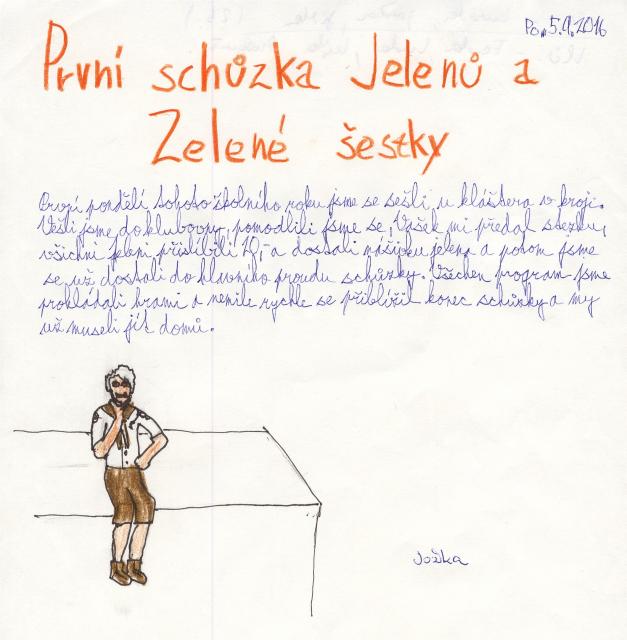 Po. 5.9.2016
První schůzka Jelenů a
Zelené šestky
První pondělí tohoto školního roku jsme se sešli u kláštera v kroji.
Vešli jsme do klubovny, pomodlili jsme se, Vašek mi předal stezku,
všichni jeleni přislíbili 10,- a dostali nášivku jelena a potom jsme
se už dostali do hlavního proudu schůzky. Všechen program jsme
prokládali hrami a nemile rychle se přiblížil konec schůzky a my
už museli jít domů.
Jožka